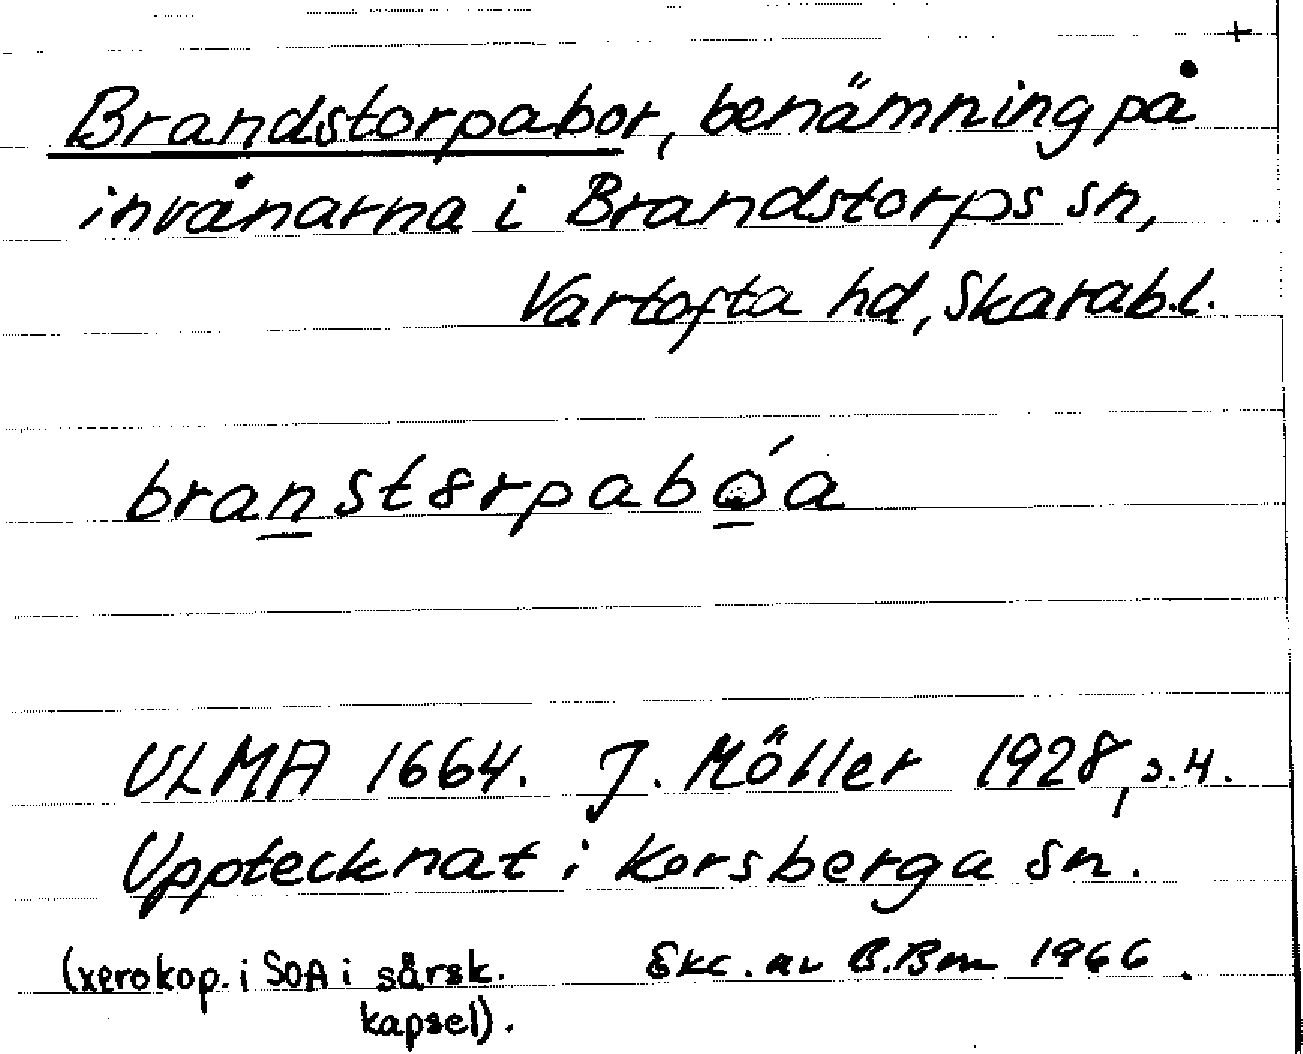 +
Brandstorpabor, benämning på
invånarna i Brandstorps sn,
Vartofta hd, Skarab.l.
branst8rpabǫ́a
ULMA 1664. J. Möller 1928, s.4.
Upptecknat i Korsberga sn.
(xerokop. i SOA i särsk. Exc. av B.Bm 1966.
kapsel).